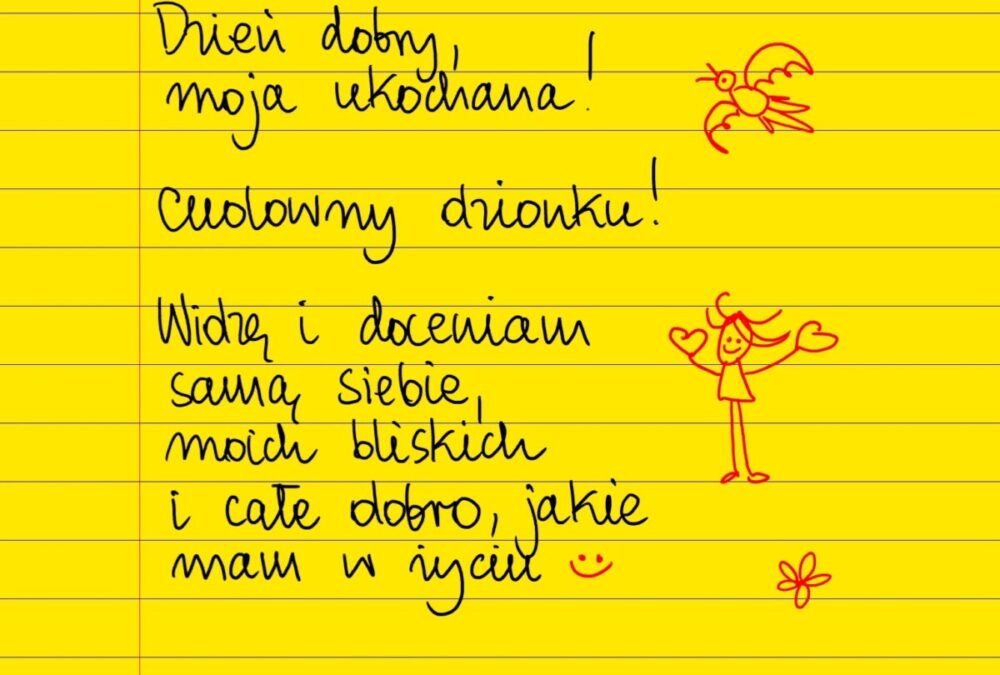 Dzień dobry,
moja ukochana!
Cudowny dzionku!
Widzę i doceniam
samą siebie,
moich bliskich
i całe dobro, jakie
mam w życiu